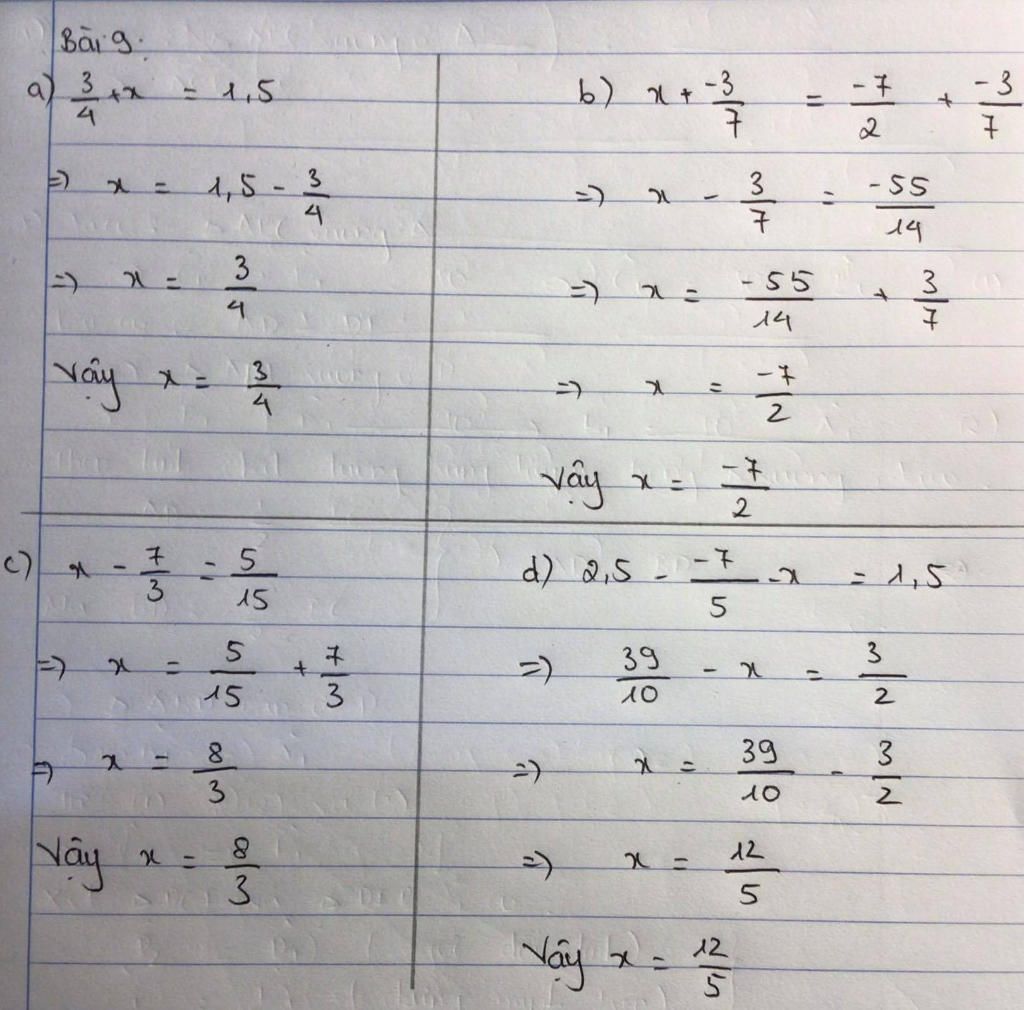 Bài 9:
a) 3/4 + x = 1,5
=> x = 1,5 - 3/4
=> x = 3/4
Vậy x = 3/4
b) x + -3/7 = -7/2 + -3/7
=> x - 3/7 = -55/14
=> x = -55/14 + 3/7
=> x = -7/2
Vậy x = -7/2
c) x - 7/3 = 5/15
=> x = 5/15 + 7/3
=> x = 8/3
Vậy x = 8/3
d) 2,5 - -7/5 - x = 1,5
=> 39/10 - x = 3/2
=> x = 39/10 - 3/2
=> x = 12/5
Vậy x = 12/5